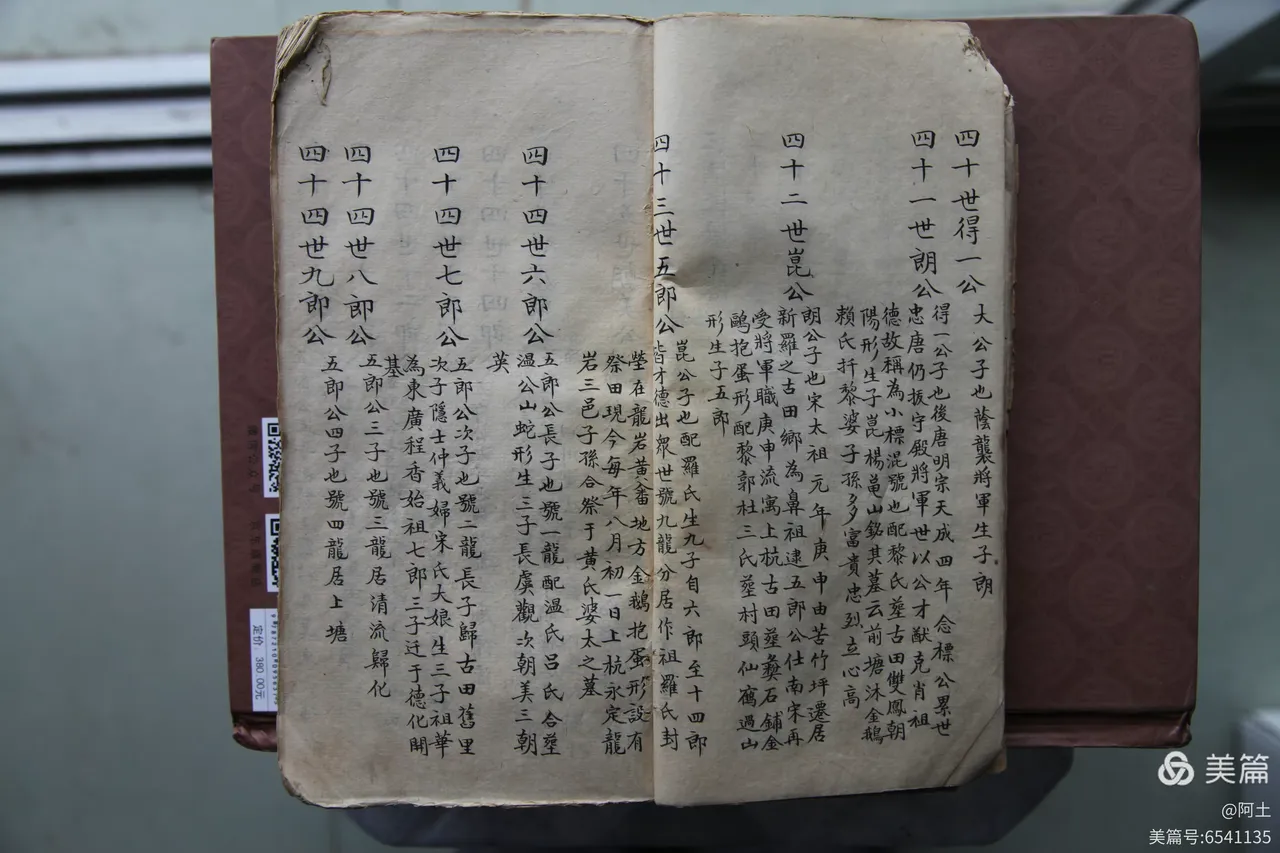 四十世得一公
大公子也蔭襲將軍生子朗
四十一世朗公
得一公子也後唐明宗天成四年念標公累世
忠唐仍拔守殿將軍世以公才猷克肖祖
德故稱為小標混號也配黎氏塟古田雙鳳朝
陽形生子崑楊龜山銘其墓云前塘沐金鵝
賴氏扦黎婆子孫多富貴忠烈立心高
四十二世崑公
朗公子也宋太祖元年庚申由苦竹坪遷居
新羅之古田鄉為鼻祖逮五郎公仕南宋再
受將軍職庚申流寓上杭古田塟彝石鋪金
鷗抱蛋形配黎郭杜三氏塟村頭仙鶴過山
形生子五郎
四十三世五郎公
崑公子也配羅氏生九子自六郎至十四郎
皆才德出眾世號九龍分居作祖羅氏封
塋在龍岩黃畬地方金鵝抱蛋形設有
祭田現今每年八月初一日上杭永定龍
岩三邑子孫合祭于黃氏婆太之墓
四十四世六郎公
五郎公長子也號一龍配温氏呂氏合塟
温公山蛇形生三子長虞觀次朝美三朝
英
四十四世七郎公
五郎公次子也號二龍長子歸古田舊里
次子隱士仲義婦宋氏大娘生三子祖華
為東廣程香始祖七郎三子迁于德化開
基
四十四世八郎公
五郎公三子也號三龍居清流歸化
四十四世九郎公
五郎公四子也號四龍居上塘
定价：380.00元
美篇
@阿土
美篇号:6541135